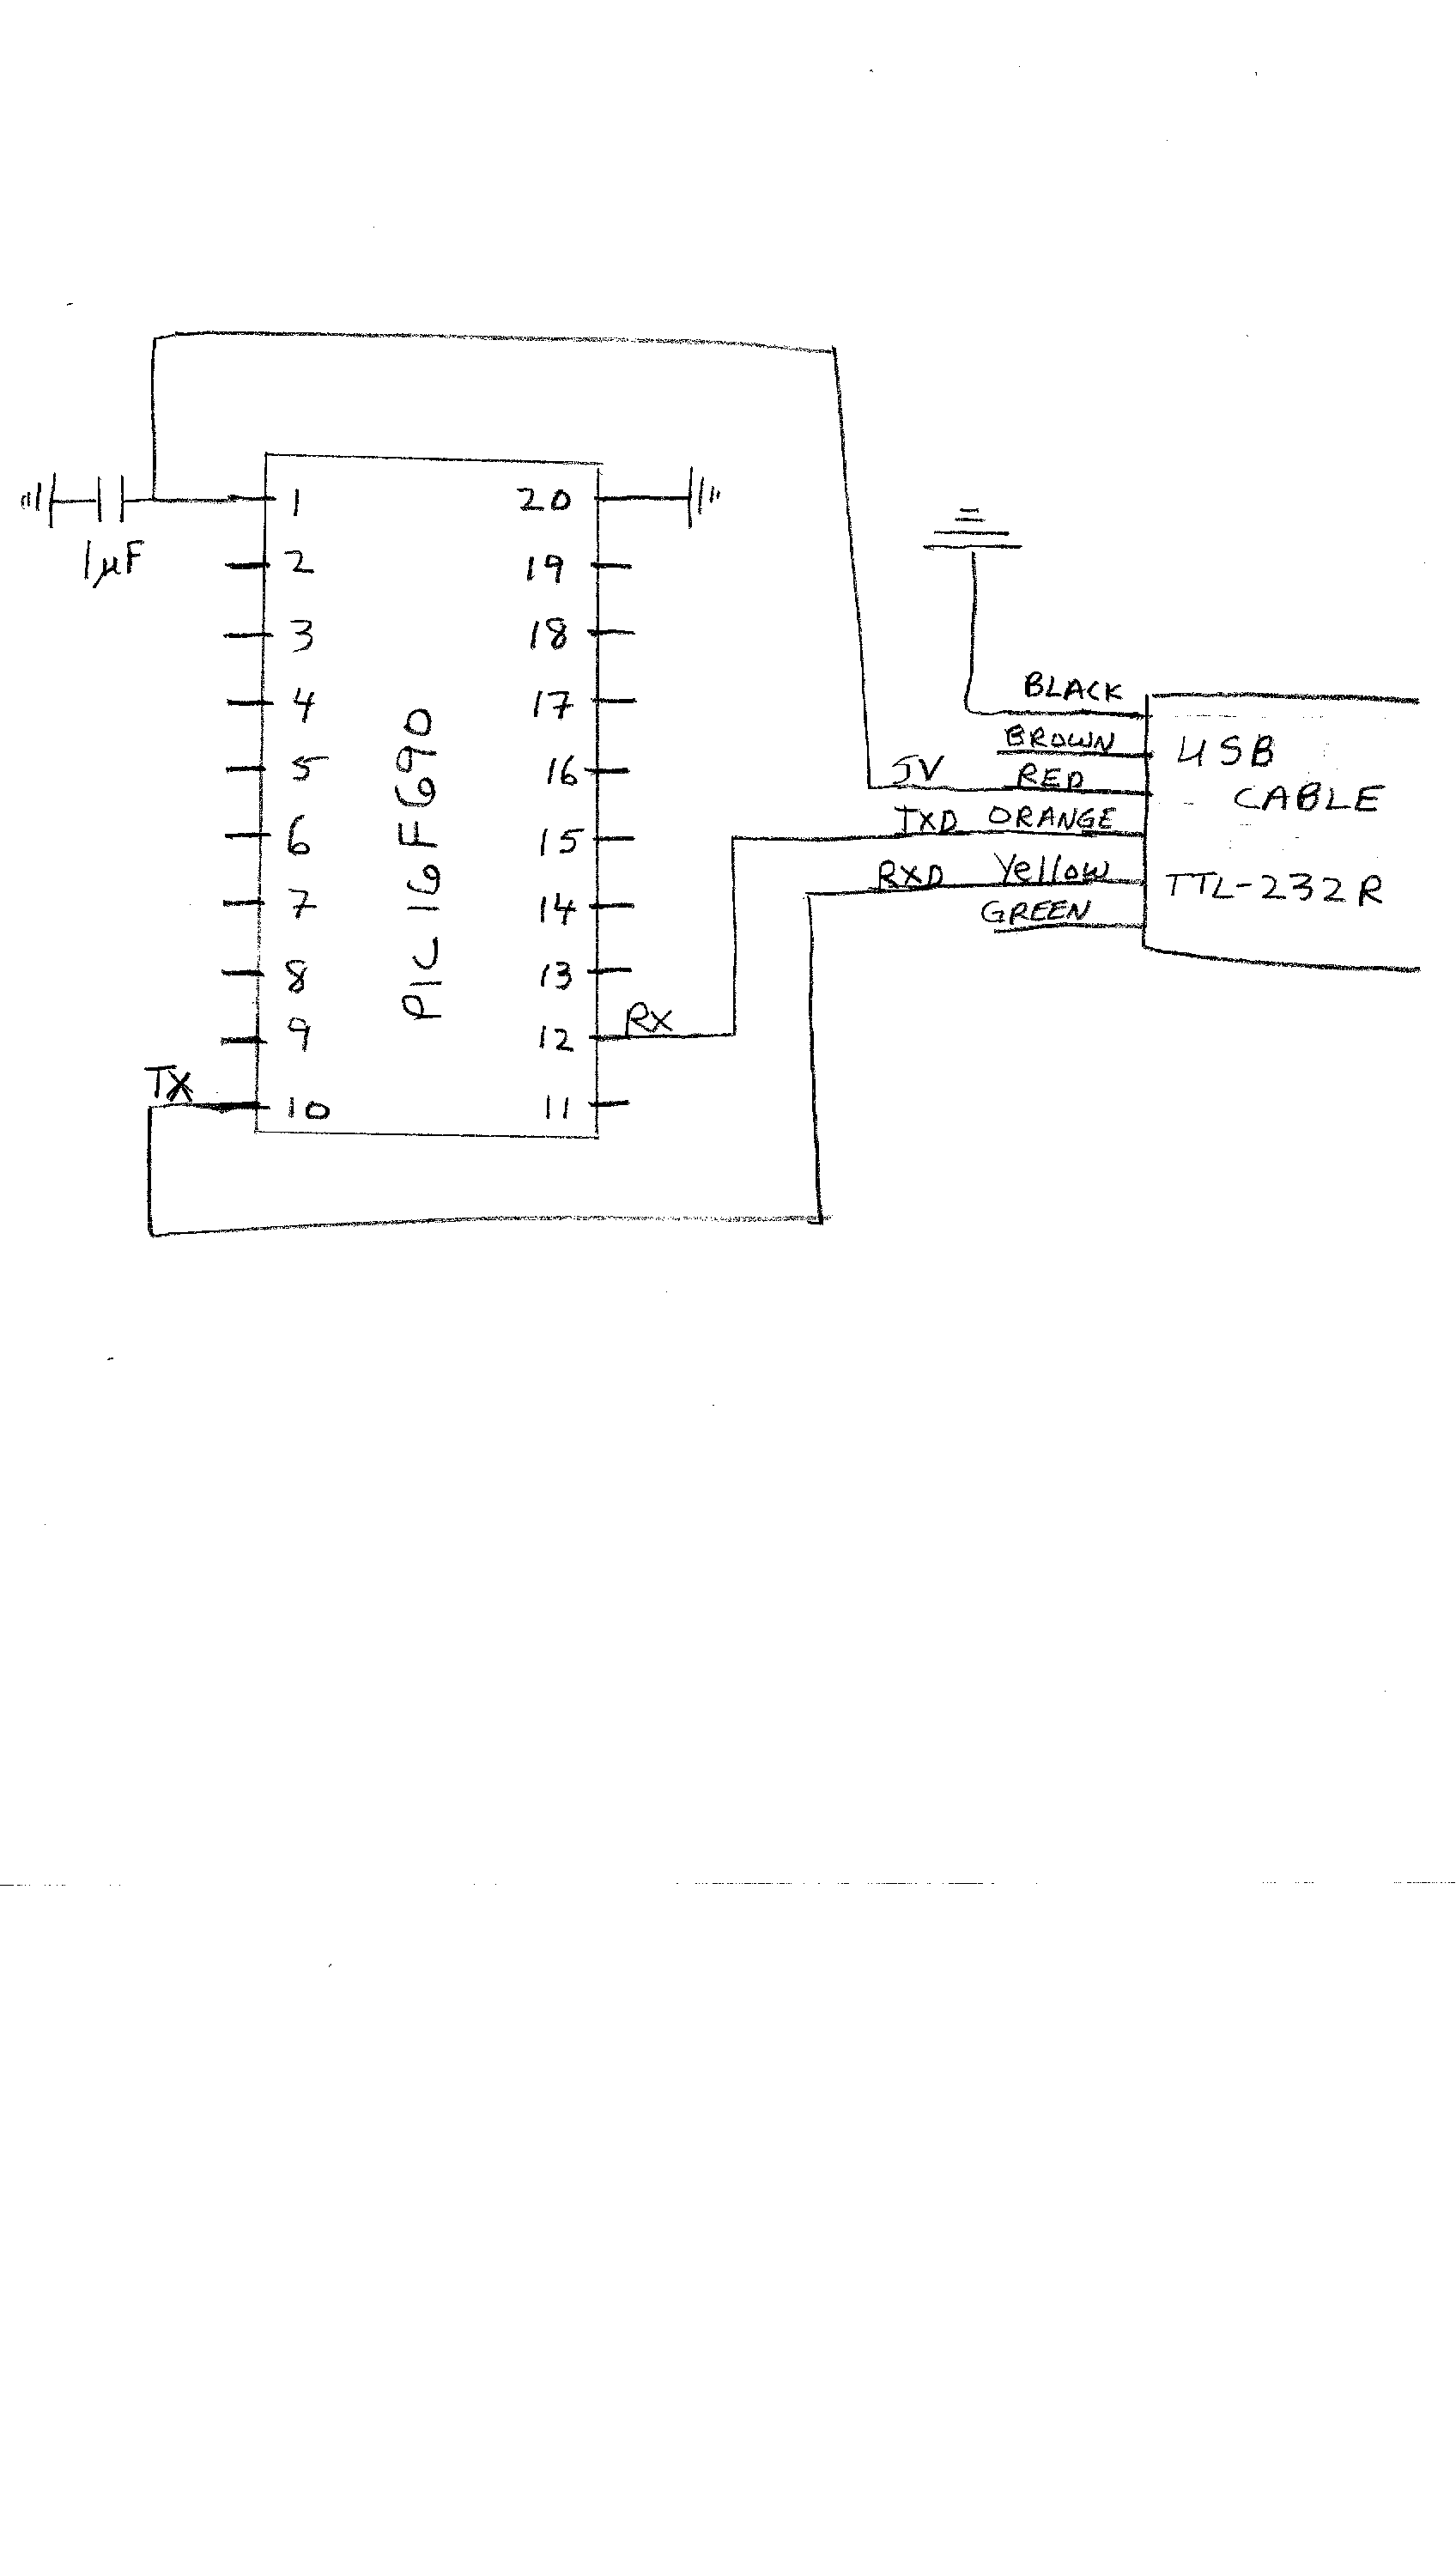 1 20
1μF
2 19
3 18
4 17
5 16
6 15
7 14
8 13
9 12 RX
TX
10 11
PIC 16F690
BLACK
BROWN
5V RED
TXD ORANGE
RXD Yellow
GREEN
USB
CABLE
TTL-232R